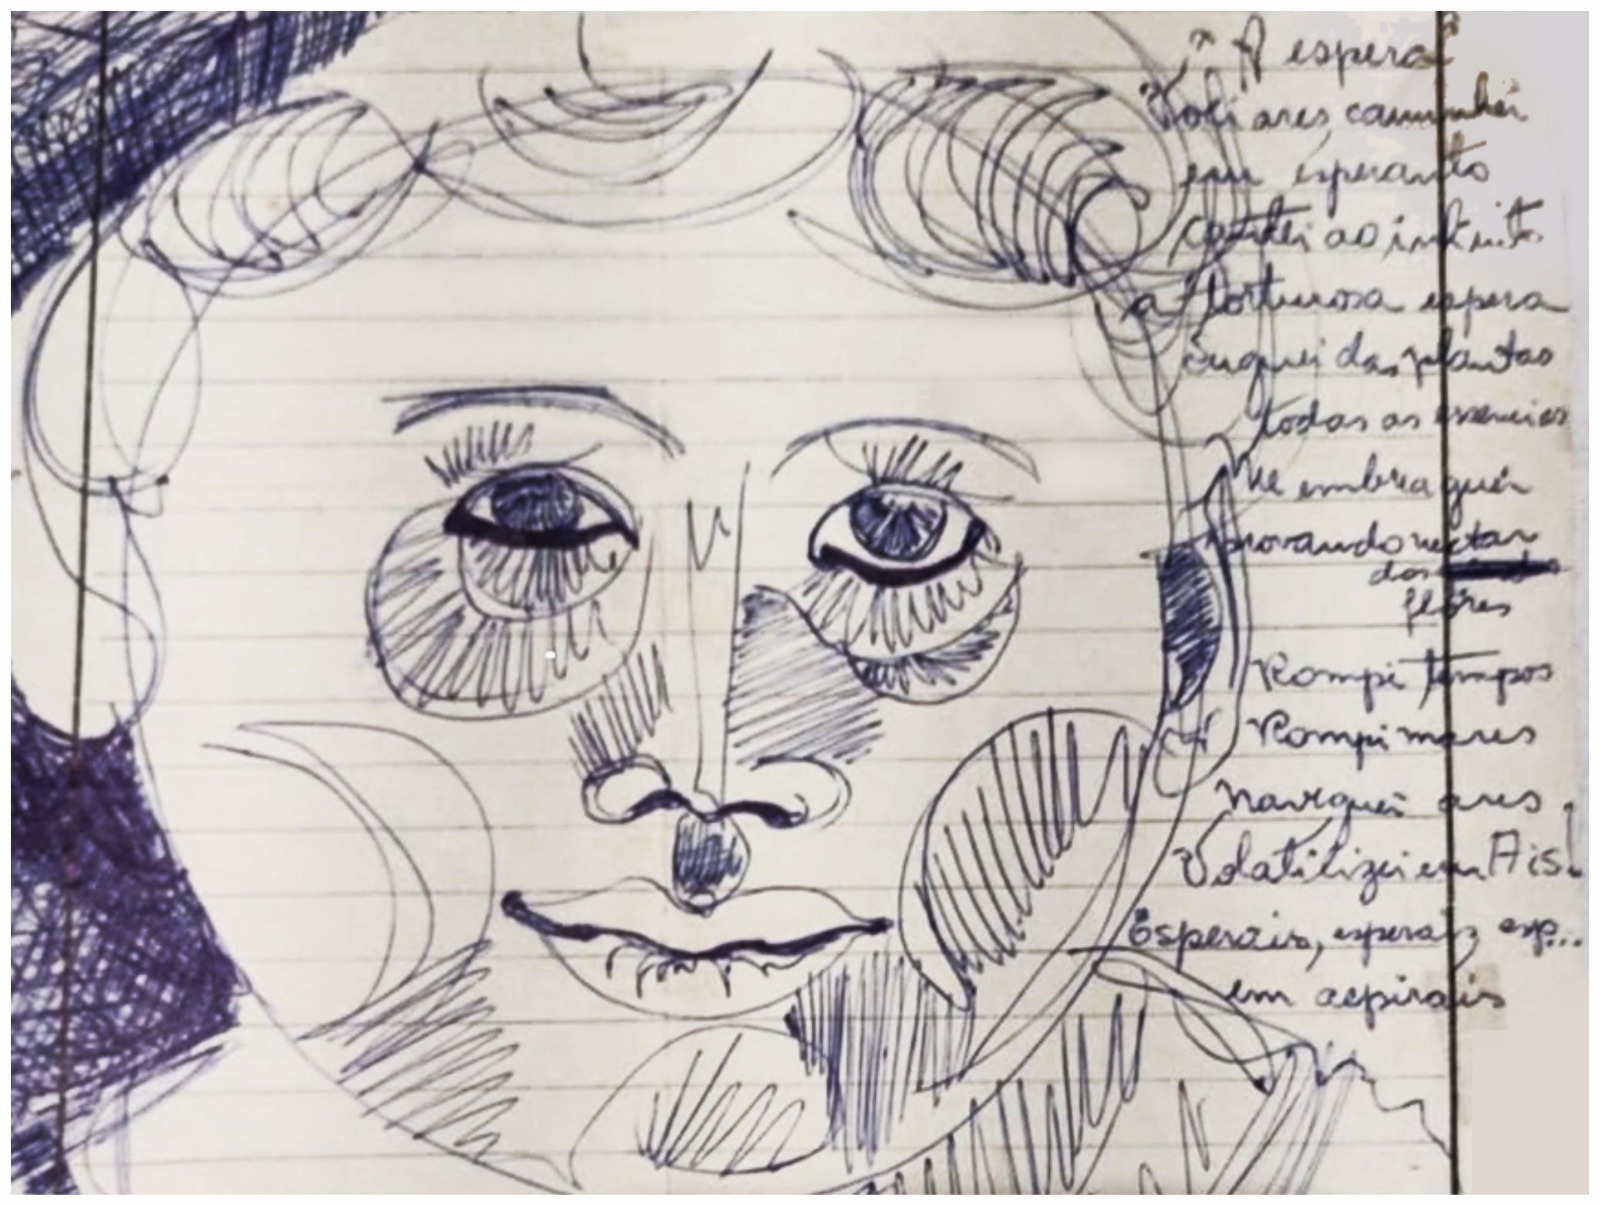 "A espera"
Voei ares, caminhei
em esperanto
Cantei ao infinito
a tortuosa espera
Suguei das plantas
todas as essencias
Me embreaguei
provando nectar
das
flores
Rompi tempos
Rompi mares
Naveguei ares
Volatilizei em Ais!
Esperais, esperais, esp...
em aespirais